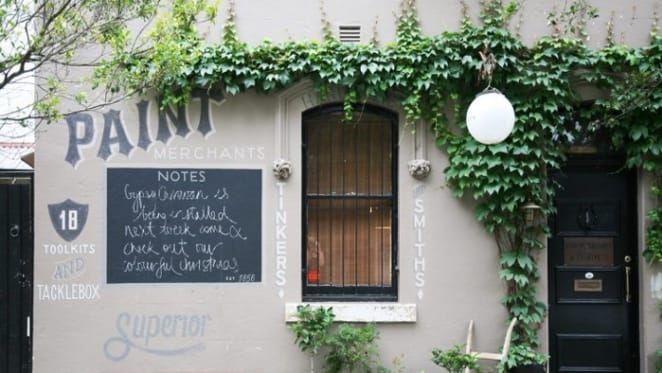 PAINT
MERCHANTS
NOTES
Gypsy Caravan is
being installed
next week come &
check out our
colourful christmas
EST 1858
18
TOOLKITS
AND
TACKLEBOX
TINKERS
SMITHS
Superior